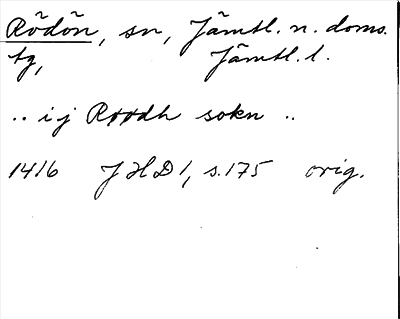 Rödön, sn, Jämtl. n. doms.
tg, Jämtl. l.
.. i j Røødh sokn ..
1416 JHD 1, s. 175 orig.